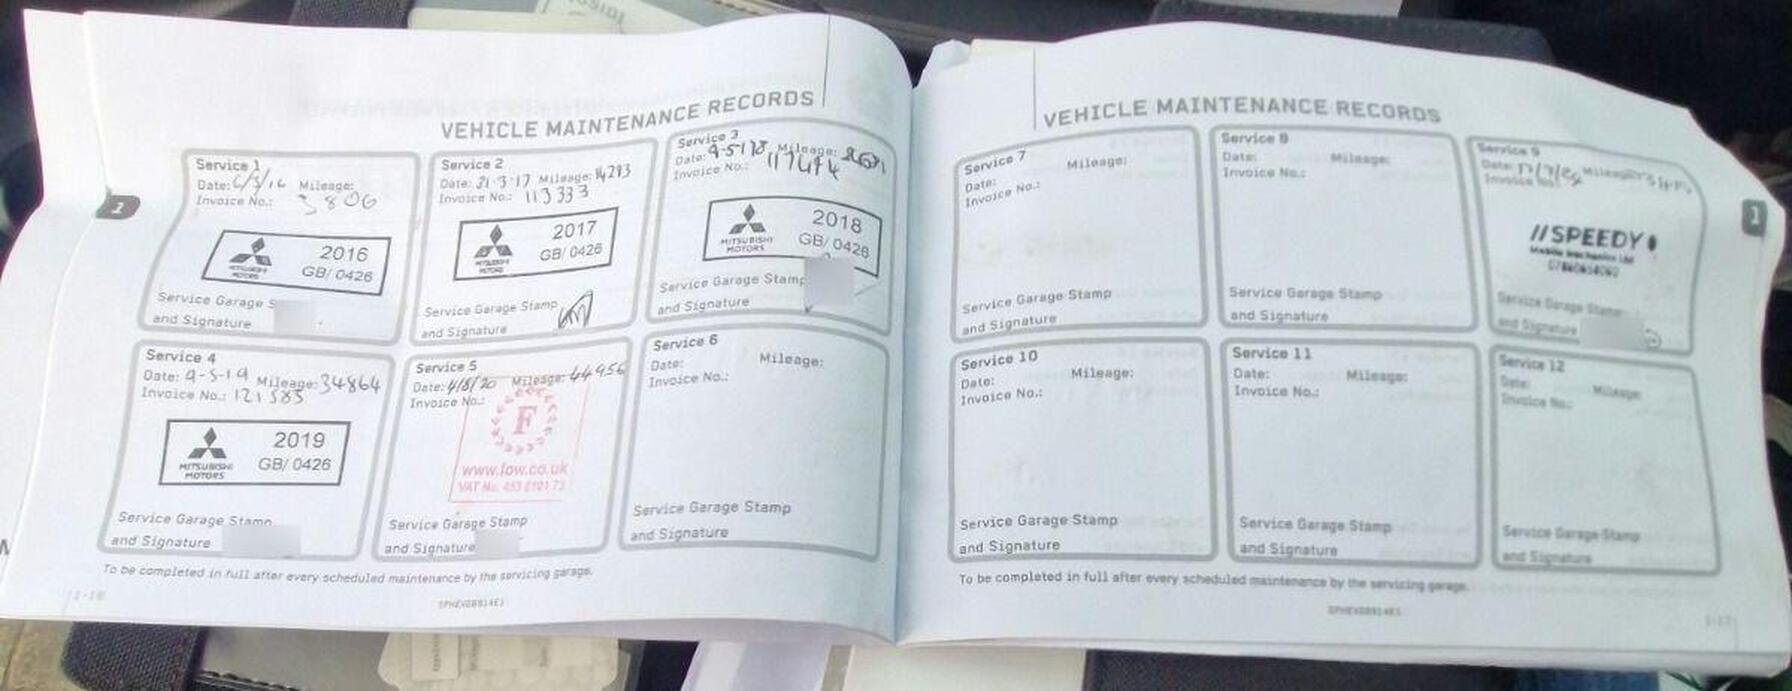 VEHICLE MAINTENANCE RECORDS
Service 1
Date: 6/5/16 Mileage:
Invoice No.: 3806
MITSUBISHI MOTORS
2016
GB/0426
Service Garage S
and Signature
Service 2
Date: 21-3-17 Mileage: 14293
Invoice No.: 113333
MITSUBISHI MOTORS
2017
GB/0426
Service Garage Stamp
and Signature
Service 3
Date: 9-5-18 Mileage:
Invoice No.: 117494
MITSUBISHI MOTORS
2018
GB/0426
Service Garage Stamp
and Signature
Service 4
Date: 9-5-19 Mileage: 34864
Invoice No.: 121585
MITSUBISHI MOTORS
2019
GB/0426
Service Garage Stamp
and Signature
Service 5
Date: 4/8/20 Mileage: 44956
Invoice No.:
F
www.fow.co.uk
VAT No.
Service Garage Stamp
and Signature
Service 6
Date: Mileage:
Invoice No.:
Service Garage Stamp
and Signature
To be completed in full after every scheduled maintenance by the servicing garage.
1
VEHICLE MAINTENANCE RECORDS
Service 7
Date: Mileage:
Invoice No.:
Service Garage Stamp
and Signature
Service 8
Date: Mileage:
Invoice No.:
Service Garage Stamp
and Signature
Service 9
Date: Mileage:
Invoice No.:
//SPEEDY
Mobile Mechanics Ltd
Service Garage Stamp
and Signature
Service 10
Date: Mileage:
Invoice No.:
Service Garage Stamp
and Signature
Service 11
Date: Mileage:
Invoice No.:
Service Garage Stamp
and Signature
Service 12
Date: Mileage:
Invoice No.:
Service Garage Stamp
and Signature
To be completed in full after every scheduled maintenance by the servicing garage.
1